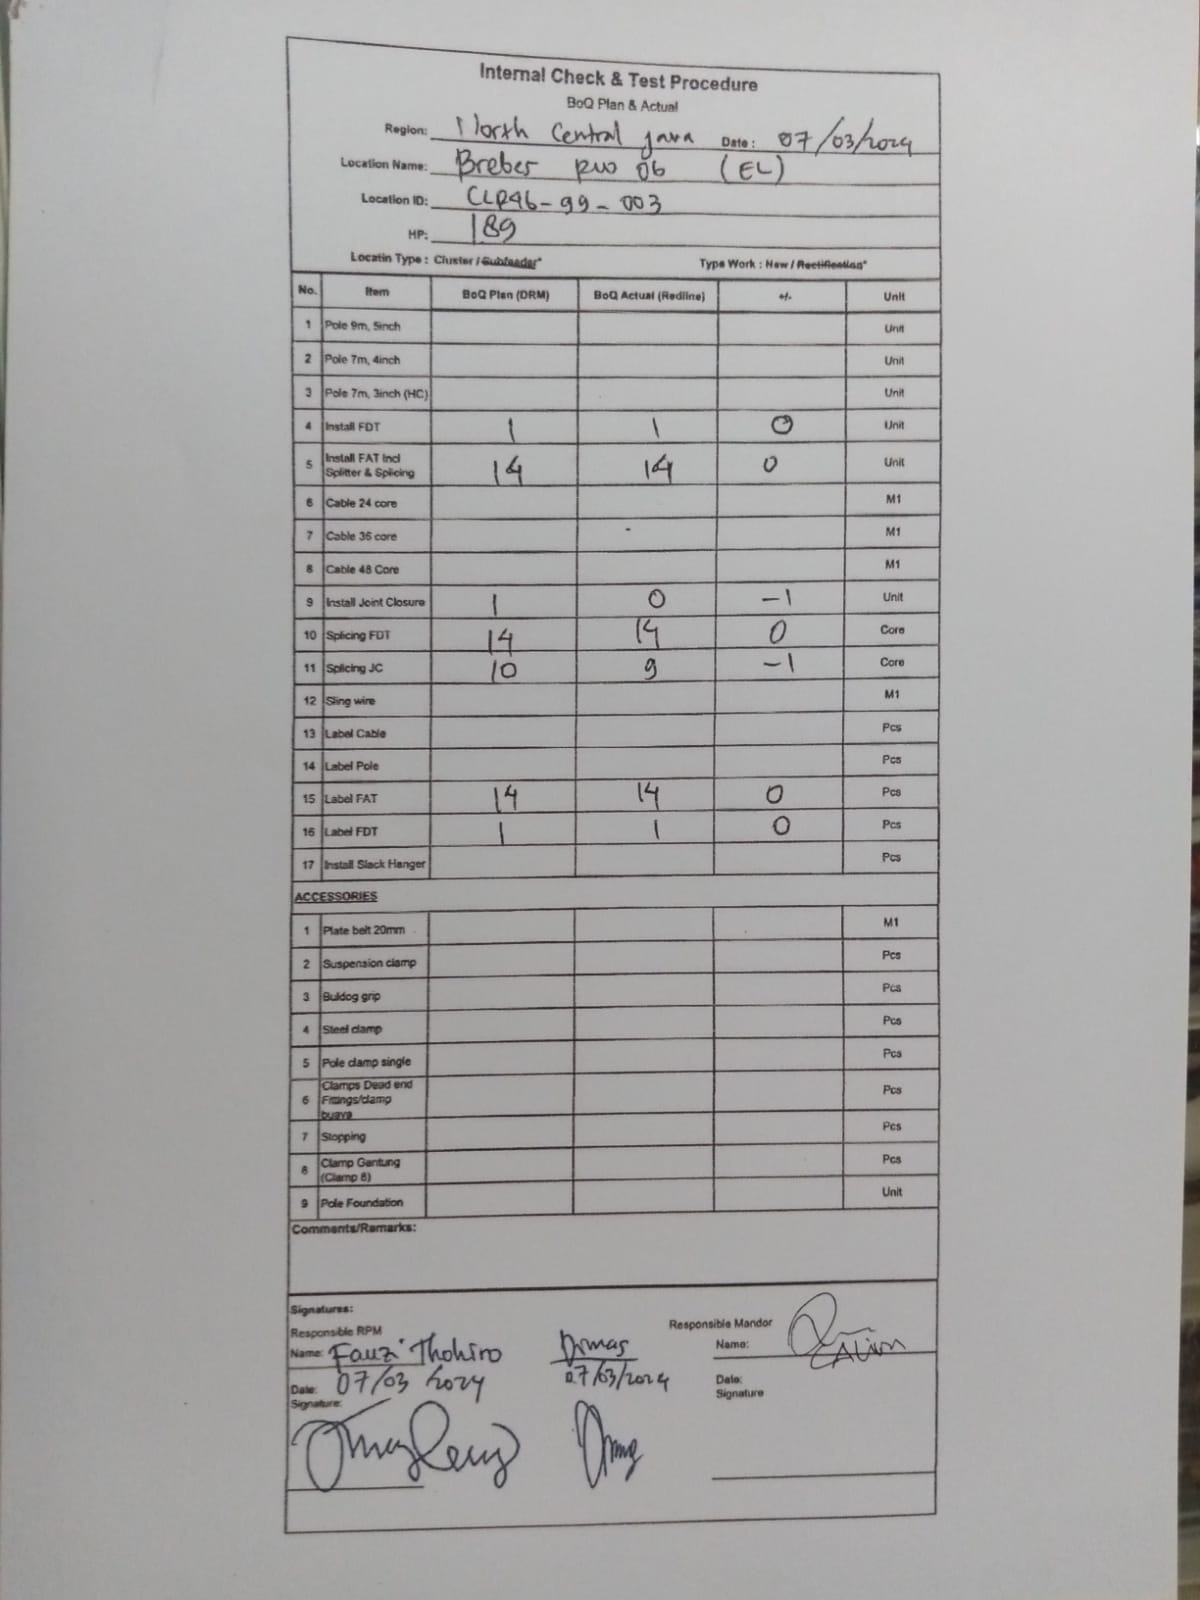 Internal Check & Test Procedure
BoQ Plan & Actual
Region: North Central Java Date: 07/03/2024
Location Name: Breber RW 06 (EL)
Location ID: CLP46-99-003
HP: 189
Locatin Type : Cluster / Subfeeder* Type Work : New / Rectification*
No. Item BoQ Plan (DRM) BoQ Actual (Redline) +/- Unit
1 Pole 9m, 5inch Unit
2 Pole 7m, 4inch Unit
3 Pole 7m, 3inch (HC) Unit
4 Install FDT 1 1 0 Unit
5 Install FAT Incl Splitter & Splicing 14 14 0 Unit
6 Cable 24 core M1
7 Cable 36 core - M1
8 Cable 48 Core M1
9 Install Joint Closure 1 0 -1 Unit
10 Splicing FDT 14 14 0 Core
11 Splicing JC 10 9 -1 Core
12 Sling wire M1
13 Label Cable Pcs
14 Label Pole Pcs
15 Label FAT 14 14 0 Pcs
16 Label FDT 1 1 0 Pcs
17 Install Slack Hanger Pcs
ACCESSORIES
1 Plate belt 20mm M1
2 Suspension clamp Pcs
3 Buldog grip Pcs
4 Steel clamp Pcs
5 Pole clamp single Pcs
6 Clamps Dead end Fittings/clamp buaya Pcs
7 Stopping Pcs
8 Clamp Gantung (Clamp 8) Pcs
9 Pole Foundation Unit
Comments/Remarks:
Signatures:
Responsible RPM Responsible Mandor
Name: Fauzi Thohiro Dimas Name:
Date: 07/03 2024 07/03/2024 Date:
Signature: Signature